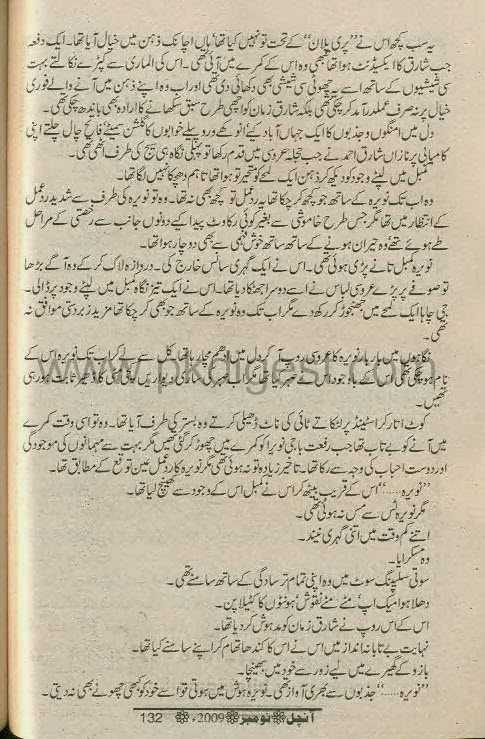 یہ سب کچھ اس نے ”پری پلان“ کے تحت تو نہیں کیا تھا‘ ہاں اچانک ذہن میں خیال آیا تھا۔ ایک دفعہ
جب شارق کا ایکسیڈنٹ ہوا تھا تبھی وہ اس کے کمرے میں آئی تھی۔ اس کی الماری سے کپڑے نکالتے بہت
سی شیشیوں کے ساتھ اسے یہ چھوٹی سی شیشی بھی دکھائی دی تھی اور اب وہ اپنے ذہن میں آنے والے فوری
خیال پر نہ صرف عملدرآمد کر چکی تھی بلکہ شارق زمان کو اچھی طرح سبق سکھانے کا ارادہ بھی باندھ چکی تھی۔
دل میں امنگوں و جذبوں کا ایک جہاں آباد کیے‘ انوکھے و روپہلے خوابوں کا گلشن سمیٹے‘ فاتح چال چلتے اپنی
کامیابی پر نازاں شارق احمد نے جب حجلہ عروسی میں قدم رکھا تو پہلی نگاہ ہی سیج کی طرف اٹھی تھی۔
کمبل میں لپٹے وجود کو دیکھ کر ذہن ایک لمحے کو متحیر تو ہوا تھا تاہم دھچکا نہیں لگا تھا۔
وہ اب تک نویرہ کے ساتھ جو کچھ کر چکا تھا یہ ردعمل تو کچھ بھی نہ تھا۔ وہ تو نویرہ کی طرف سے شدید ردعمل
کے انتظار میں تھا مگر جس طرح خاموشی سے بغیر کوئی رکاوٹ پیدا کیے دونوں جانب سے رخصتی کے مراحل
طے ہوئے تھے وہ حیران ہونے کے ساتھ ساتھ خوش فہمی سے بھی دوچار ہوا تھا۔
نویرہ کمبل تانے پڑی ہوئی تھی۔ اس نے ایک گہری سانس خارج کی۔ دروازہ لاک کر کے وہ آگے بڑھا
تو صوفے پر پڑے عروسی لباس نے اسے دوسرا جھٹکا دیا تھا۔ اس نے ایک تیز نگاہ کمبل میں لپٹے وجود پر ڈالی۔
جی چاہا ایک لمحے میں جھنجوڑ کر رکھ دے مگر اب تک وہ نویرہ کے ساتھ جو بھی کر چکا تھا مزید زبردستی موافق نہ
تھی۔
نگاہوں میں بار بار نویرہ کا عروسی روپ آ کر دل میں ادھم مچا رہا تھا۔ کل سے لے کر اب تک نویرہ اس کے
نام ہو چکی تھی اس کے باوجود اس نے صبر کیا تھا مگر اب صبر کی ساری دیواریں کچی مٹی کا ڈھیر ثابت ہو رہی
تھیں۔
کوٹ اتار کر اسٹینڈ پر لٹکاتے ٹائی کی ناٹ ڈھیلی کرتے وہ بستر کی طرف آیا تھا۔ وہ تو اسی وقت کمرے
میں آنے کو بے تاب تھا جب رفعت باجی نویرا کو کمرے میں چھوڑ کر گئی تھیں مگر بہت سے مہمانوں کی موجودگی
اور دوست احباب کی وجہ سے رکا تھا۔ تاخیر زیادہ تو نہ ہوئی تھی مگر نویرہ کا ردعمل عین توقع کے مطابق تھا۔
”نویرہ......“ اس کے قریب بیٹھ کر اس نے کمبل اس کے وجود سے کھینچ لیا تھا۔
مگر نویرہ ٹس سے مس نہ ہوئی تھی۔
اتنے کم وقت میں اتنی گہری نیند۔
وہ مسکرایا۔
سوتی سلیپنگ سوٹ میں وہ اپنی تمام تر سادگی کے ساتھ سامنے تھی۔
دھلا ہوا میک اپ‘ مٹے مٹے نقوش‘ ہونٹوں کا کٹیلا پن۔
اس کے اس روپ نے شارق زمان کو مدہوش کر دیا تھا۔
نہایت بے تابانہ انداز میں اس نے اس کا کندھا تھام کر اپنے سامنے کیا تھا۔
بازو کے گھیرے میں لیے زور سے خود میں بھینچا۔
”نویرہ......“ جذبوں سے بھری آواز تھی۔ نویرہ ہوش میں ہوتی تو اسے خود کو کبھی چھونے بھی نہ دیتی۔
آنچل نومبر 2009ء 132
www.pkdigest.com